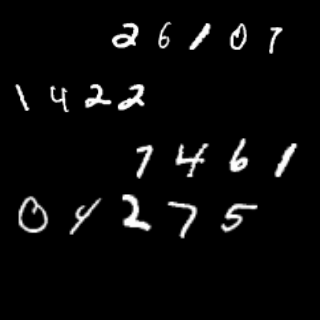 26107
1422
7461
04275